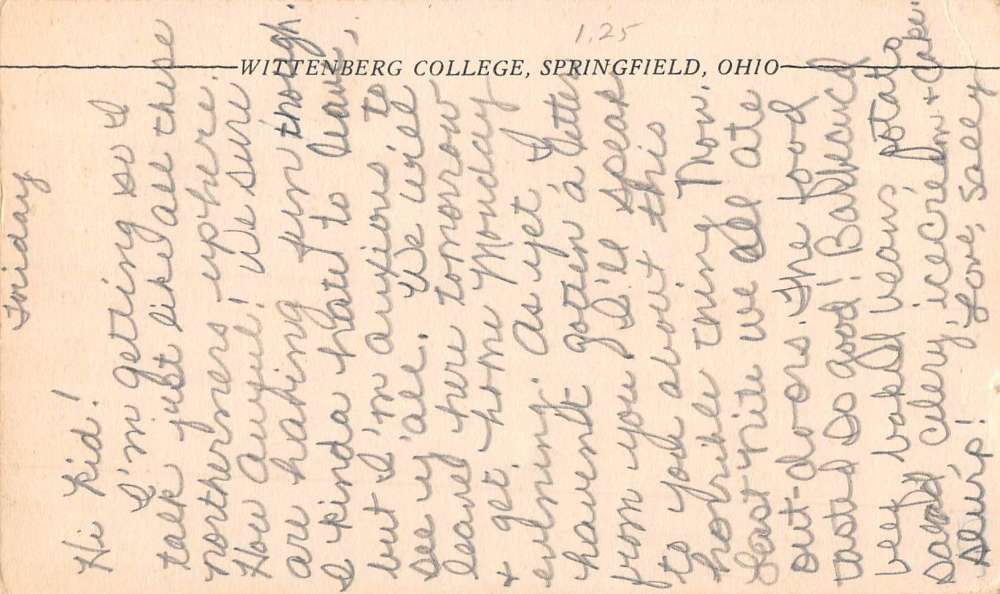 1.25
WITTENBERG COLLEGE, SPRINGFIELD, OHIO
Friday
Hi Kid!
I'm getting so I
talk just like all these
northerners up here.
How auyue! We sure
are having fun though.
I kinda hate to leave,
but I'm anxious to
see y'all. We will
leave here tomorrow
+ get home Monday
evening. As yet I
havenlt goten a letter
from you I'll speak
to you about this
horrible thing Now.
Last nite we all ate
out-doors. The food
tasted so good! Balbecued
beef baked beans, potato
salad celery, icecream + cake.
Slurp! Love, Sally